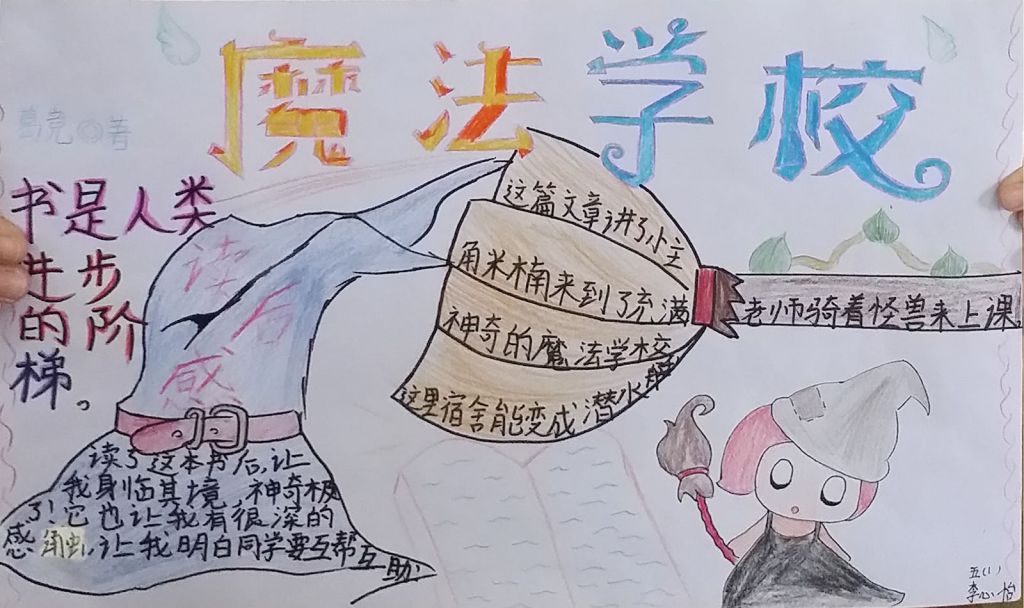 魔法学校
葛竞◎著
书是人类
进步
的阶
梯。
读后感
这篇文章讲了小主
角米楠来到了充满
神奇的魔法学校
这里宿舍能变成潜水艇
老师骑着怪兽来上课
读了这本书后,让
我身临其境,神奇极
了!它也让我有很深的
感触,让我明白同学要互帮互助
五(1)
李心怡